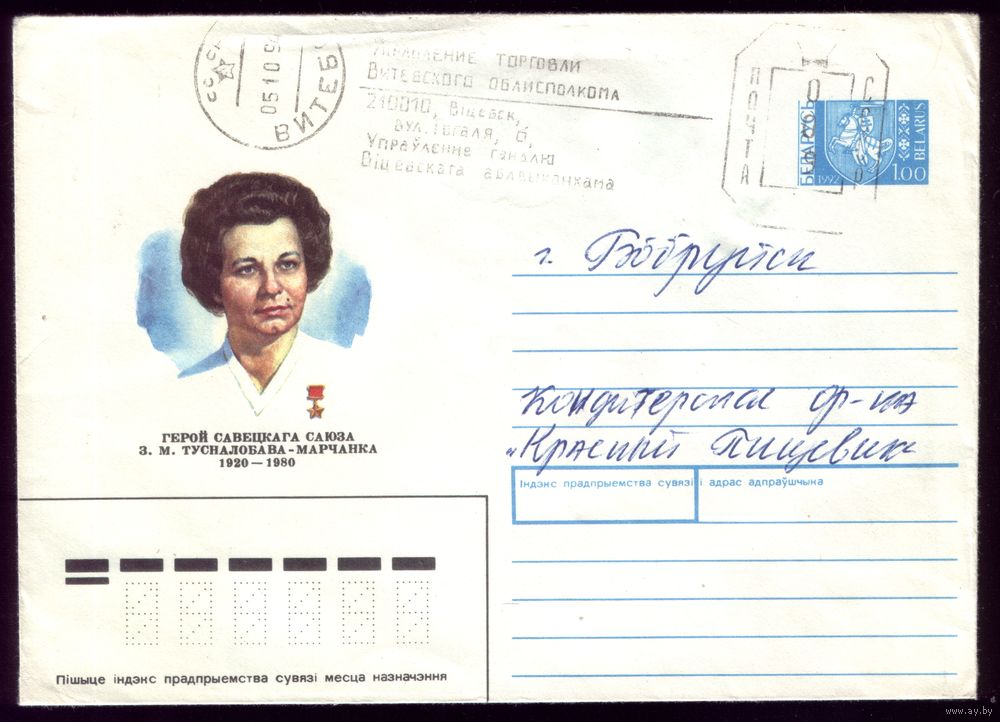 05 10 9
ВИТЕБ
УПРАВЛЕНИЕ ТОРГОВЛИ
ВИТЕБСКОГО ОБЛИСПОЛКОМА
210010, Віцебск,
вул. Гогаля, 6,
Упраўленне гандлю
Віцебскага аблвыканкама
ПОШТА
БЕЛАРУСЬ
1992
1.00
BELARUS
г. Бобруйск
Кондитерская ф-ка
"Красный Пищевик
ГЕРОЙ САВЕЦКАГА САЮЗА
З. М. ТУСНАЛОБАВА-МАРЧАНКА
1920—1980
Індэкс прадпрыемства сувязі і адрас адпраўшчыка
Пішыце індэкс прадпрыемства сувязі месца назначэння
www.ay.by